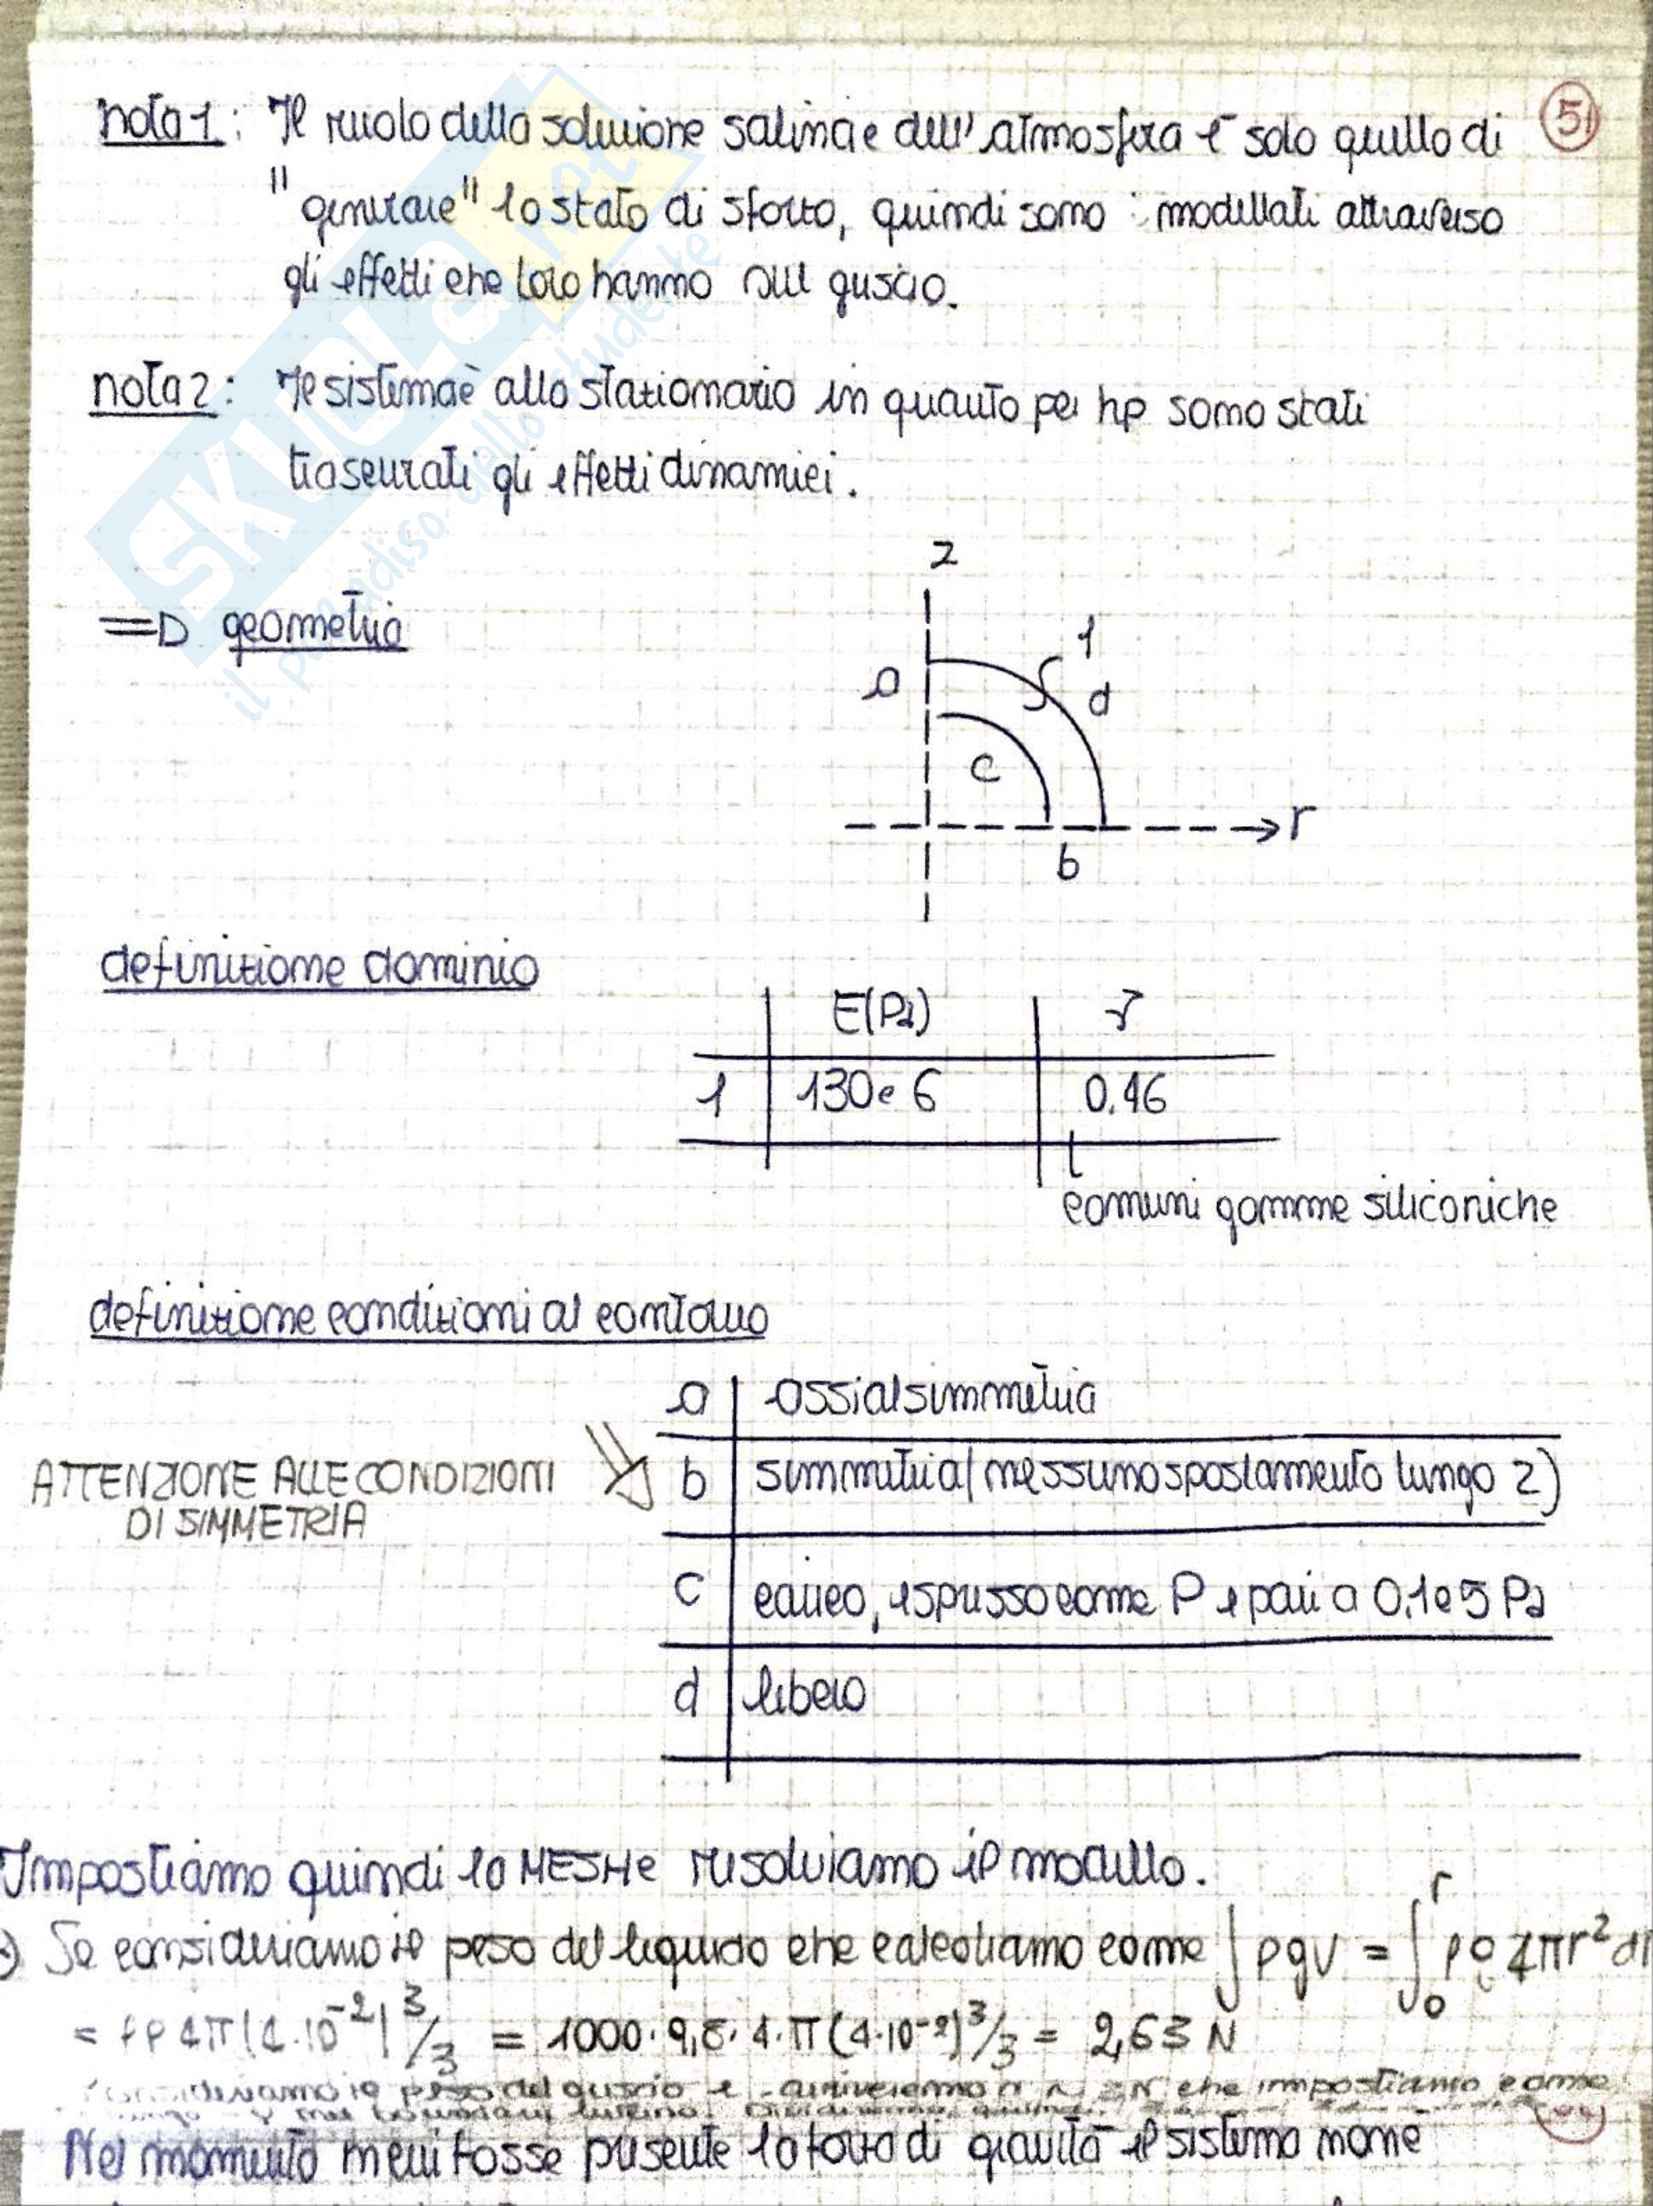 nota 1: Il ruolo della soluzione salina e dell'atmosfera è solo quello di
51
"generare" lo stato di sforzo, quindi sono modellati attraverso
gli effetti che loro hanno sul guscio.
nota 2: Il sistema è allo stazionario in quanto per hp sono stati
trascurati gli effetti dinamici.
SKUOLA.net
il paradiso dello studente
z
=D geometria
1
a
d
c
r
b
definizione dominio
E(Pa) ν
1 130e6 0.46
comuni gomme siliconiche
definizione condizioni al contorno
a assialsimmetria
ATTENZIONE ALLE CONDIZIONI
DI SIMMETRIA
b simmetria (nessuno spostamento lungo z)
c carico, espresso come P e pari a 0,1e5 Pa
d libero
Impostiamo quindi la MESH e risolviamo il modello.
Se consideriamo il peso del liquido che calcoliamo come ∫ρgV = ∫₀ʳ ρg 4πr² dr
= ρg 4π(4·10⁻²)³/3 = 1000·9,8·4·π(4·10⁻²)³/3 = 2,63 N
consideriamo il peso del guscio e arriveremo a ~ 3N che impostiamo come
Nel momento in cui fosse presente la forza di gravità il sistema non è